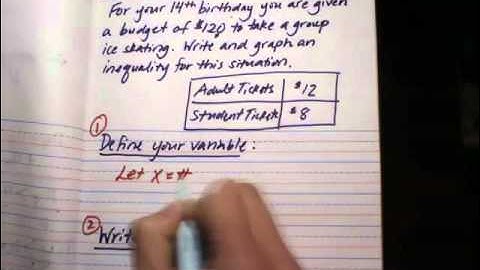 For your 14th birthday you are given
a budget of $120 to take a group
ice skating. Write and graph an
inequality for this situation.
Adult Tickets $12
Student Tickets $8
① Define your variable:
Let x = #
② Write